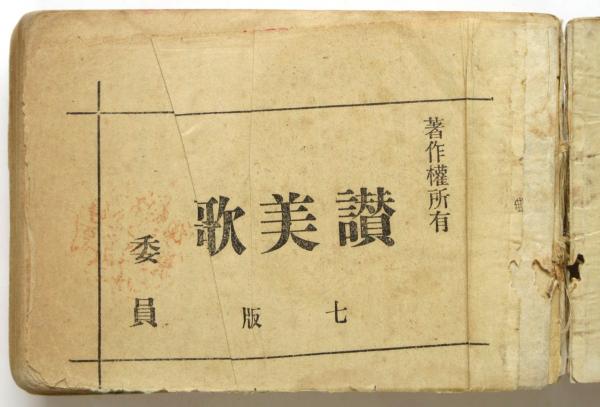 著作權所有
讃美歌
七版
委員